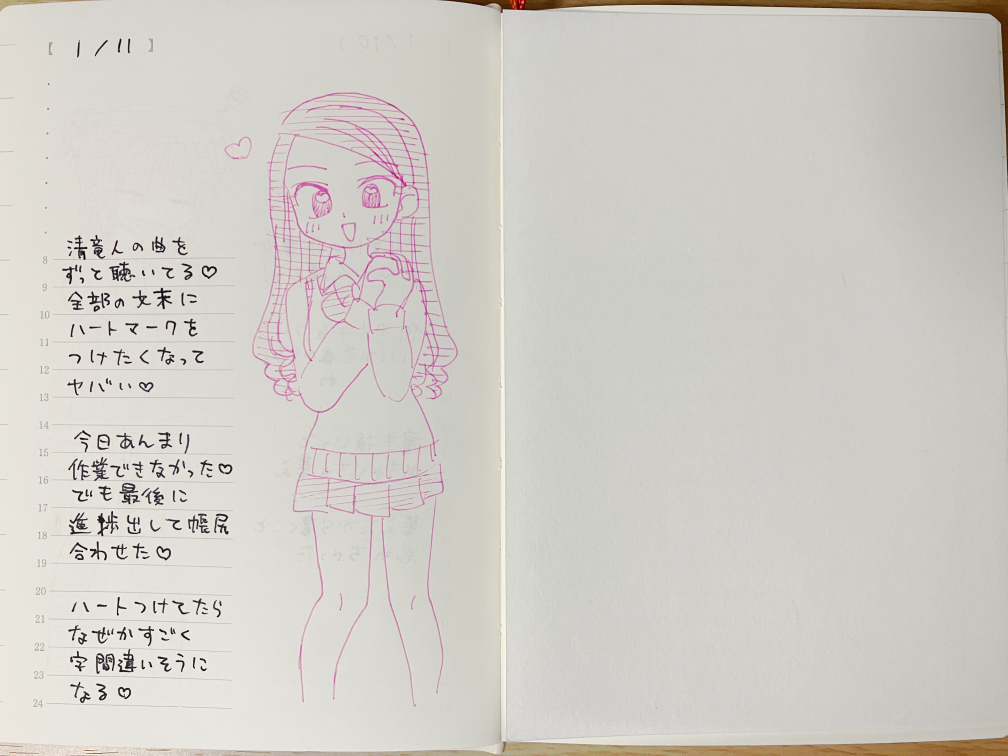 【 1/11 】
清竜人の曲を
ずっと聴いてる♡
全部の文末に
ハートマークを
つけたくなって
ヤバい♡
今日あんまり
作業できなかった♡
でも最後に
進捗出して帳尻
合わせた♡
ハートつけてたら
なぜかすごく
字間違いそうに
なる♡
8
9
10
11
12
13
14
15
16
17
18
19
20
21
22
23
24